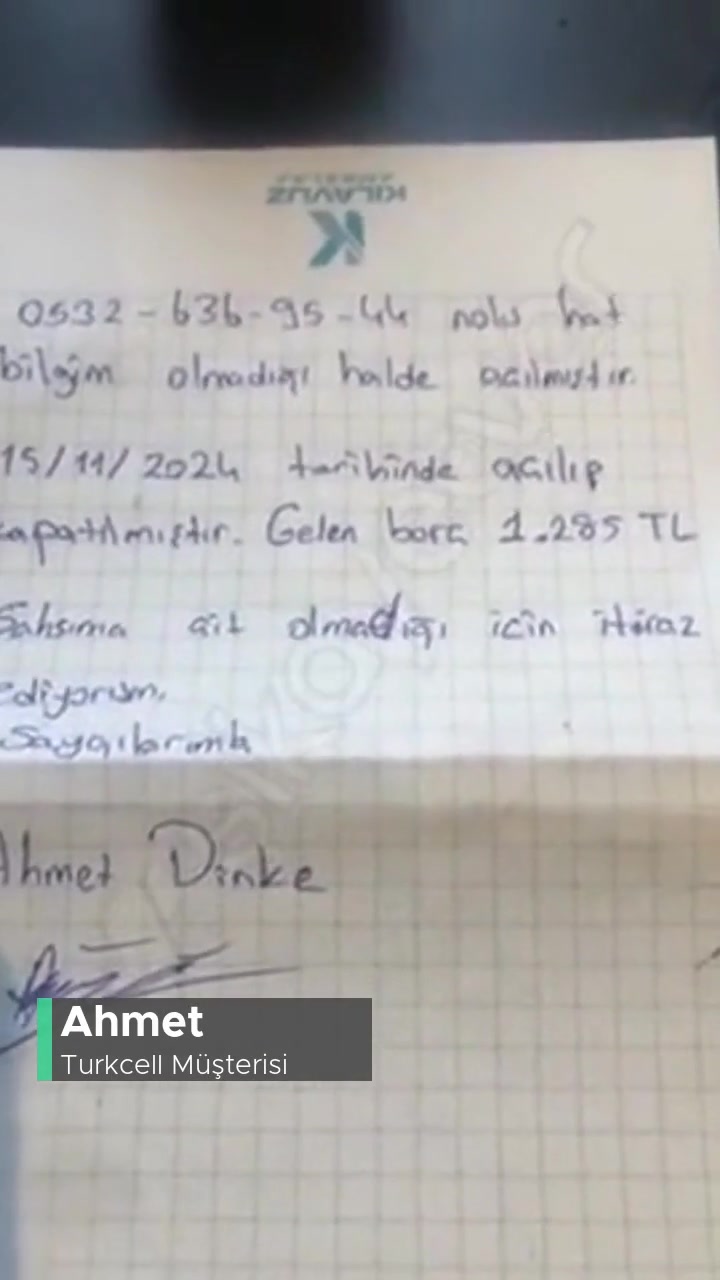 KILAVUZ
0532-636-95-44 nolu hat
bilgim olmadığı halde açılmıştır.
15/11/2024 tarihinde açılıp
apatılmıştır. Gelen borç 1.285 TL
Şahsıma ait olmadığı için itiraz
ediyorum.
Saygılarımla
Ahmet Dinke
Ahmet
Turkcell Müşterisi